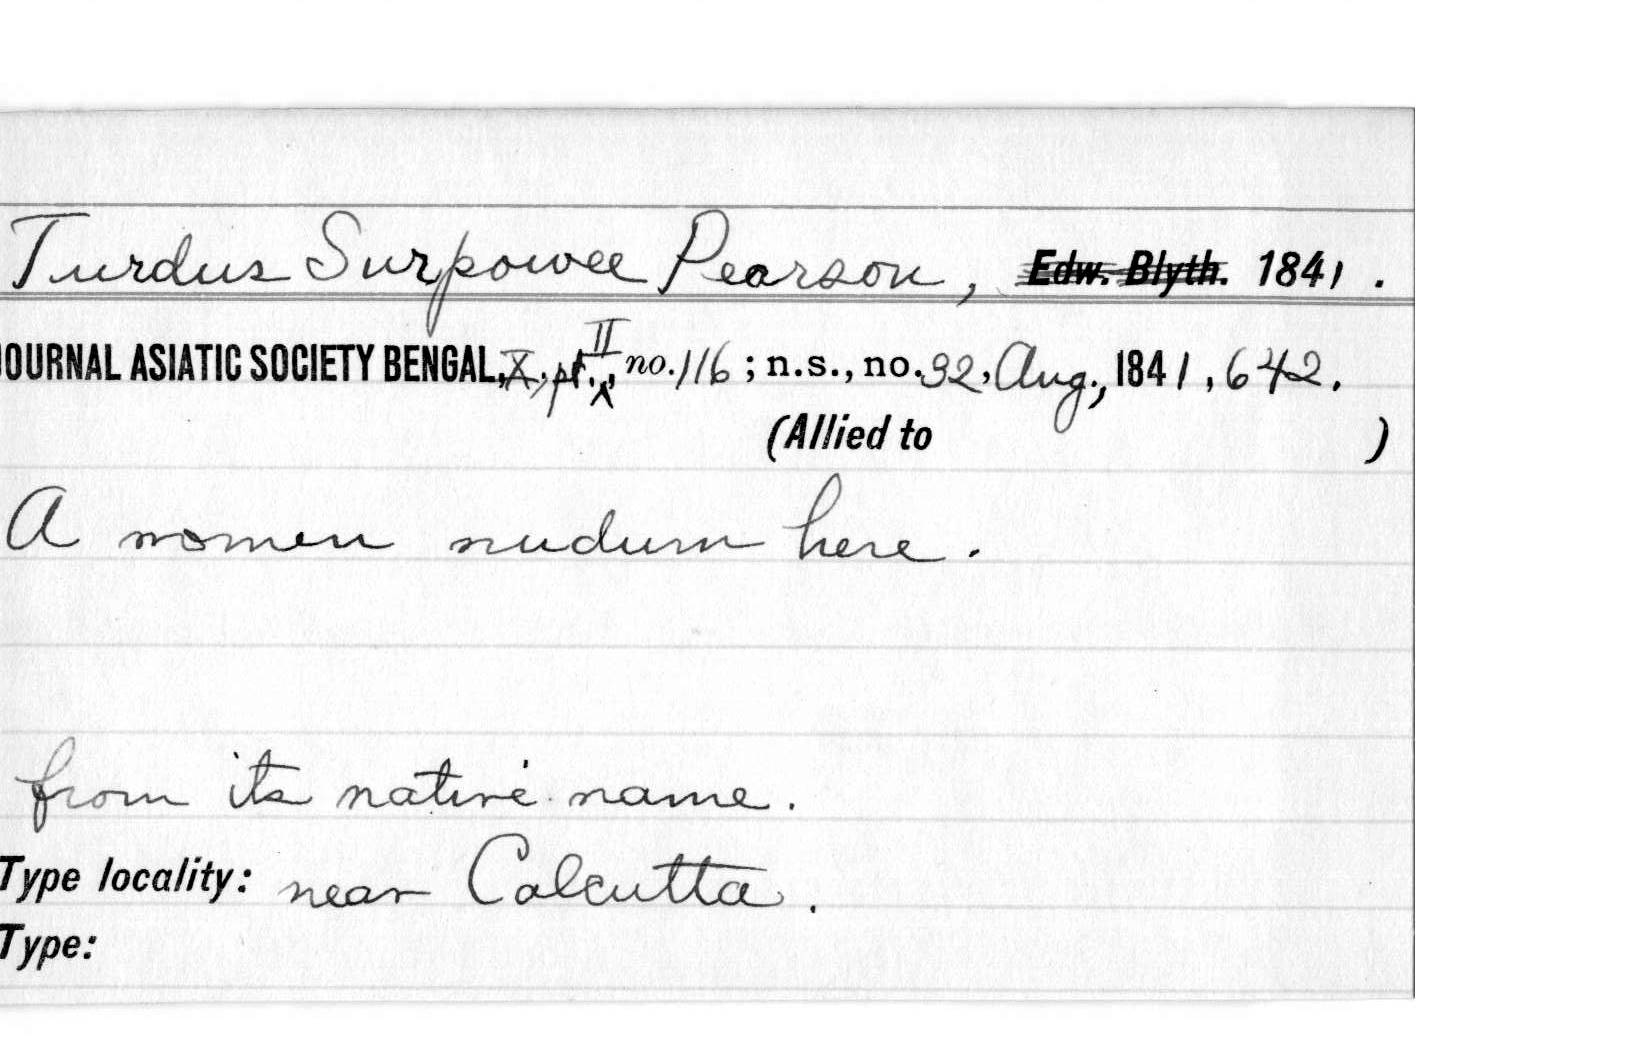 Turdus Surpowee Pearson, Edw. Blyth. 1841.
JOURNAL ASIATIC SOCIETY BENGAL, X, pt. II, no. 116; n.s., no. 32, Aug., 1841, 642.
(Allied to )
A nomen nudum here.
from its native name.
Type locality: near Calcutta.
Type: